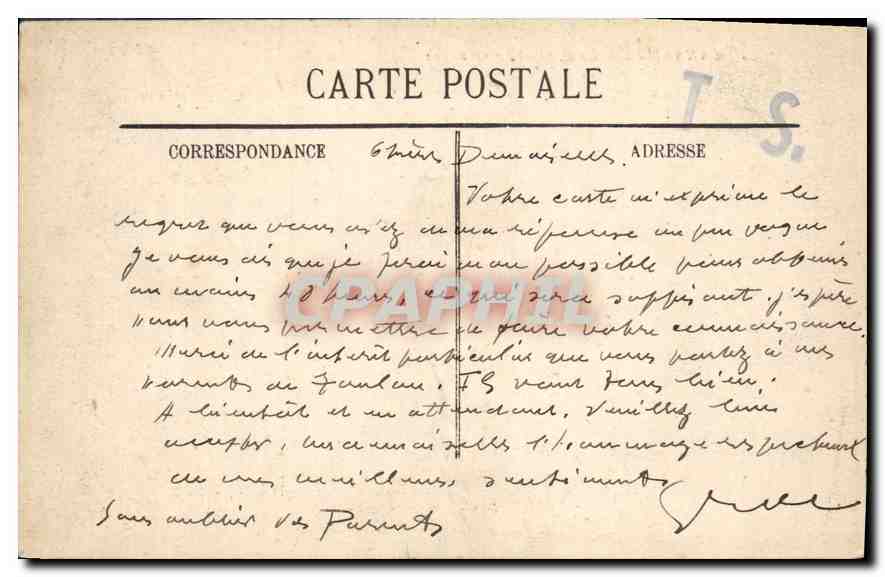 CARTE POSTALE
T S.
CORRESPONDANCE
ADRESSE
Demoiselles
Votre carte m'exprime le
regret que vous avez de ma réponse un peu vague
Je vous dis que je ferai mon possible pour obtenir
au moins 48 heures, ce qui sera suffisant. J'espère
pour vous permettre de faire votre connaissance.
Merci de l'intérêt particulier que vous portez à mes
parents de Toulon. Ils vont tous bien.
A bientôt et en attendant, veuillez bien
accepter, mesdemoiselles l'hommage respectueux
de mes meilleurs sentiments
Sans oublier vos Parents
CPAPHIL